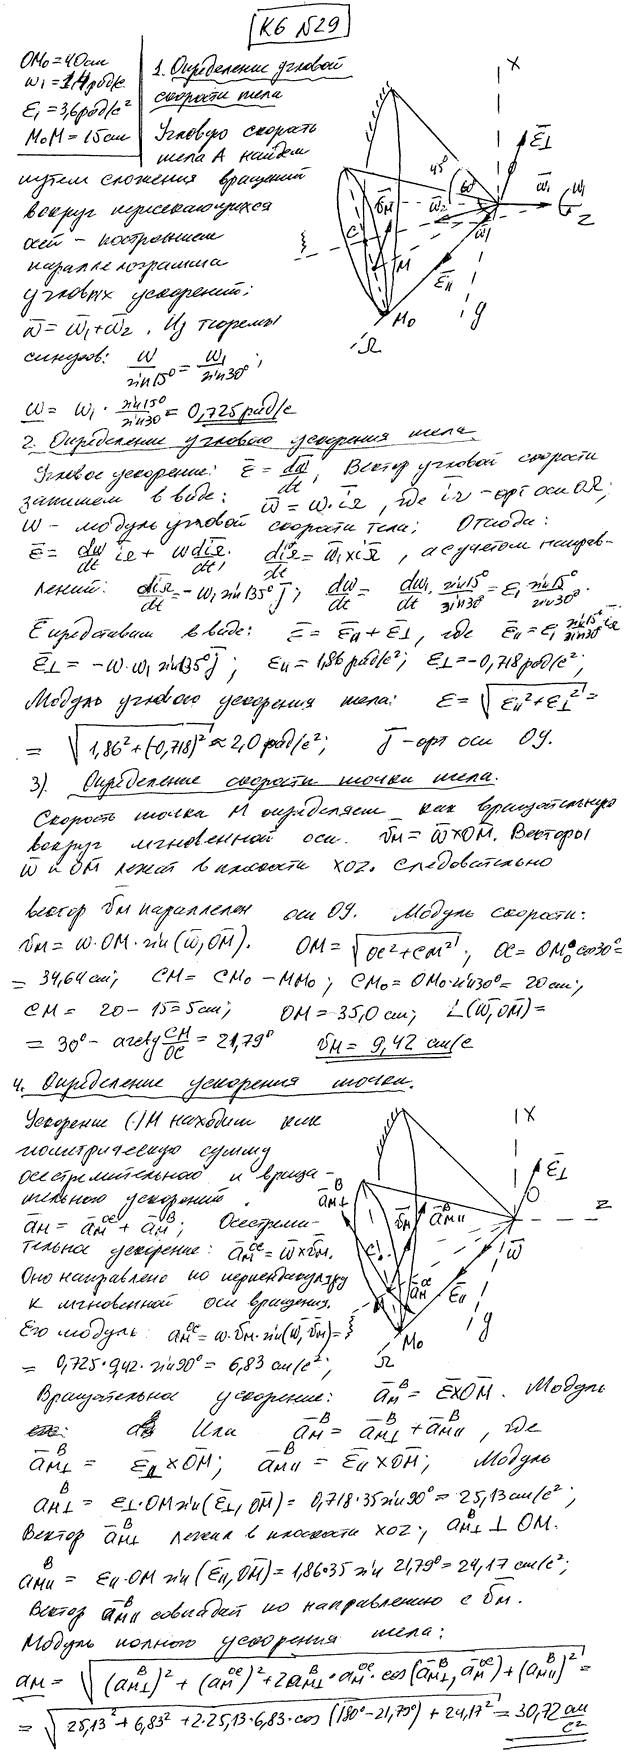 К6 №29
OM₀=40см
ω₁=1,4рад/с
ε₁=3,6рад/с²
M₀M=15см
1. Определение угловой
скорости тела
Угловую скорость
тела А найдем
путем сложения вращений
вокруг пересекающихся
осей – построением
параллелограмма
угловых ускорений:
ω̄=ω̄₁+ω̄₂. Из теоремы
синусов: ω/sin15°=ω₁/sin30°;
ω=ω₁·sin15°/sin30=0,725рад/с
X
ε̄⊥
45°
60°
ω̄₂
ω̄₁
ω₁
Z
v̄м
C
M
ω̄₁
ε̄ıı
ξ
M₀
y
Ω
2. Определение углового ускорения тела.
Угловое ускорение: ε̄=dω̄/dt; Вектор угловой скорости
запишем в виде: ω̄=ω·īΩ, где īΩ-орт оси OΩ;
ω – модуль угловой скорости тела; Отсюда:
ε̄=dω/dt īΩ+ω dīΩ/dt, dīΩ/dt=ω̄₁×īΩ, а с учетом направ-
лений: dīΩ/dt=-ω₁sin135°j̄; dω/dt=dω₁/dt·sin15°/sin30°=ε₁ sin15°/sin30°.
ε̄ представим в виде: ε̄=ε̄ıı+ε̄⊥, где ε̄ıı=ε₁ sin15°/sin30° īΩ
ε̄⊥=-ω·ω₁sin135°j̄; εıı=1,86рад/с²; ε⊥=-0,718рад/с²;
Модуль углового ускорения тела: ε=√(εıı²+ε⊥²)=
=√(1,86²+(-0,718)²)≈2,0рад/с²; j̄-орт оси OY.
3). Определение скорости точки тела.
Скорость точки М определяем как вращательную
вокруг мгновенной оси. v̄м=ω̄×OM. Векторы
ω̄ и OM лежат в плоскости XOZ. Следовательно
вектор v̄м параллелен оси OY. Модуль скорости:
vм=ω·OM·sin(ω̄,OM). OM=√(OC²+CM²); OC=OM₀cos30°=
=34,64см; CM=CM₀-MM₀; CM₀=OM₀·sin30°=20см;
CM=20-15=5см; OM=35,0см; ∠(ω̄,OM)=
=30°-arctg CM/OC=21,79° vм=9,42 см/с
4. Определение ускорения точки.
Ускорение (·)М находим как
геометрическую сумму
осестремительного и враща-
тельного ускорений.
āм=āмᵒᶜ+āмᴮ; Осестреми-
тельное ускорение: āмᵒᶜ=ω̄×v̄м.
Оно направлено по перпендикуляру
к мгновенной оси вращения.
Его модуль: aмᵒᶜ=ω·vм·sin(ω̄,v̄м)=
=0,725·9,42·sin90°=6,83см/с²;
X
ε̄⊥
O
Z
āм⊥ᴮ
v̄м
āмııᴮ
ω̄
C
āмᵒᶜ
ε̄ıı
M
ξ
M₀
y
Ω
Вращательное ускорение: āмᴮ=ε̄×OM. Модуль
Или āмᴮ=āм⊥ᴮ+āмııᴮ, где
āм⊥ᴮ=ε̄⊥×OM; āмııᴮ=ε̄ıı×OM; Модуль
āм⊥ᴮ=ε⊥·OM sin(ε̄⊥,OM)=0,718·35sin90°=25,13см/с²;
Вектор āм⊥ᴮ лежит в плоскости XOZ; āм⊥ᴮ⊥OM.
aмııᴮ=εıı·OM sin(ε̄ıı,OM)=1,86·35 sin 21,79°=24,17см/с²;
Вектор āмııᴮ совпадает по направлению с v̄м.
Модуль полного ускорения тела:
aм=√((aм⊥ᴮ)²+(aмᵒᶜ)²+2aм⊥ᴮ·aмᵒᶜ·cos(āм⊥ᴮ,āмᵒᶜ)+(aмııᴮ)²)=
=√(25,13²+6,83²+2·25,13·6,83·cos(180°-21,79°)+24,17²)=30,72 см/с²